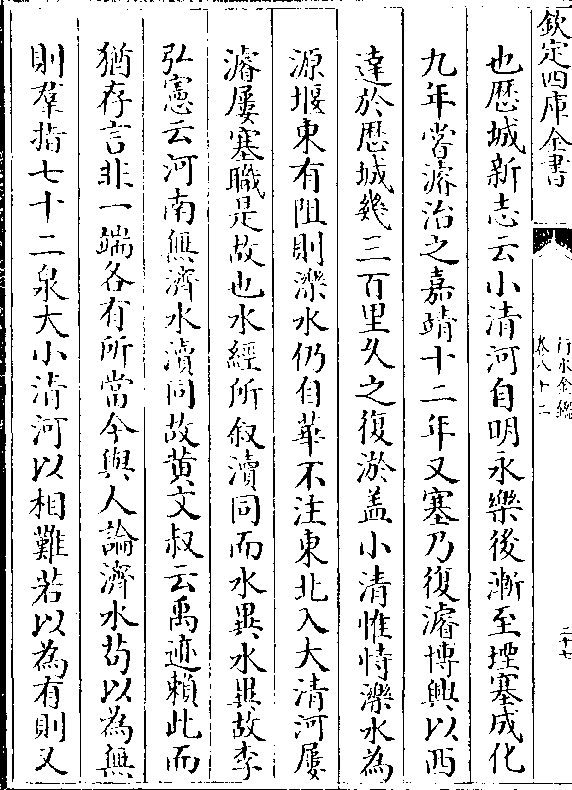 欽定四庫全書
行水金鑑
卷八十二
二十七
也歴城新志云小清河自明永樂後漸至堙塞成化
九年嘗濬治之嘉靖十二年又塞乃復濬博興以西
達於歴城幾三百里久之復淤盖小清惟恃濼水為
源堰東有阻則濼水仍自華不注東北入大清河屢
濬屢塞職是故也水經所叙瀆同而水異水異故李
弘憲云河南無濟水瀆同故黄文叔云禹迹賴此而
猶存言非一端各有所當今與人論濟水茍以為無
則羣指七十二泉大小清河以相難若以為有則又